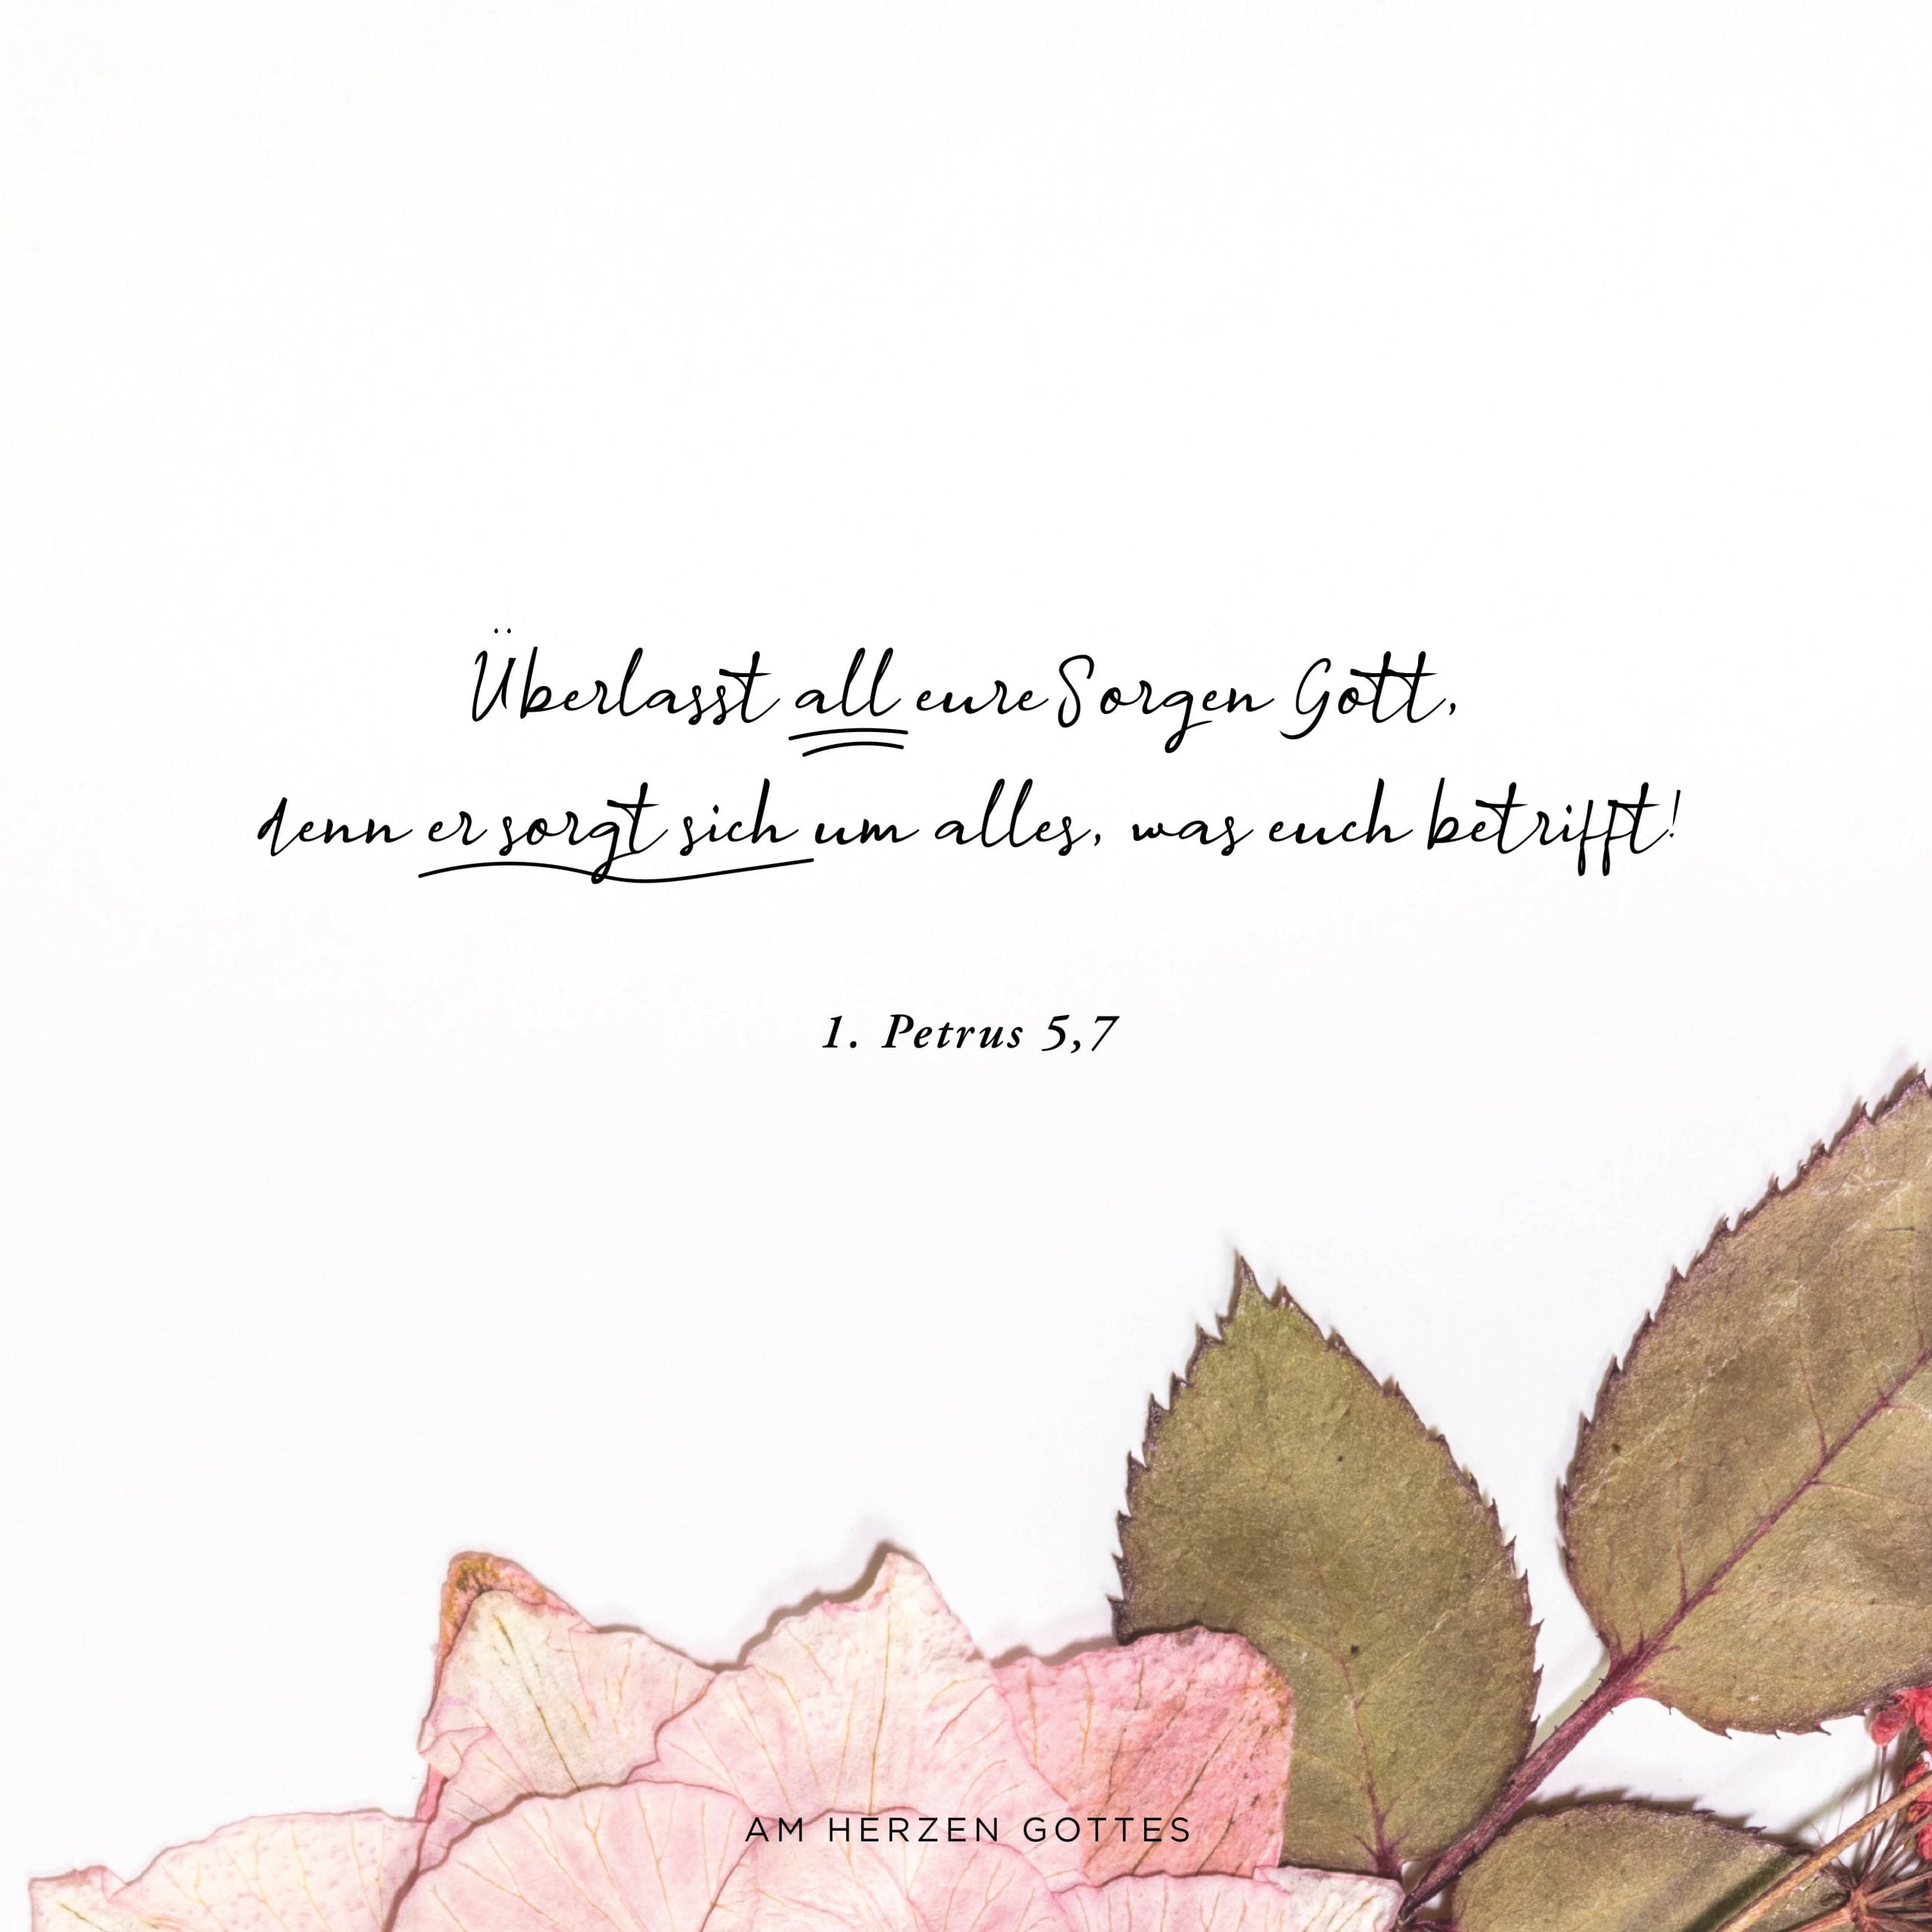 Überlasst all eure Sorgen Gott,
denn er sorgt sich um alles, was euch betrifft!
1. Petrus 5,7
AM HERZEN GOTTES